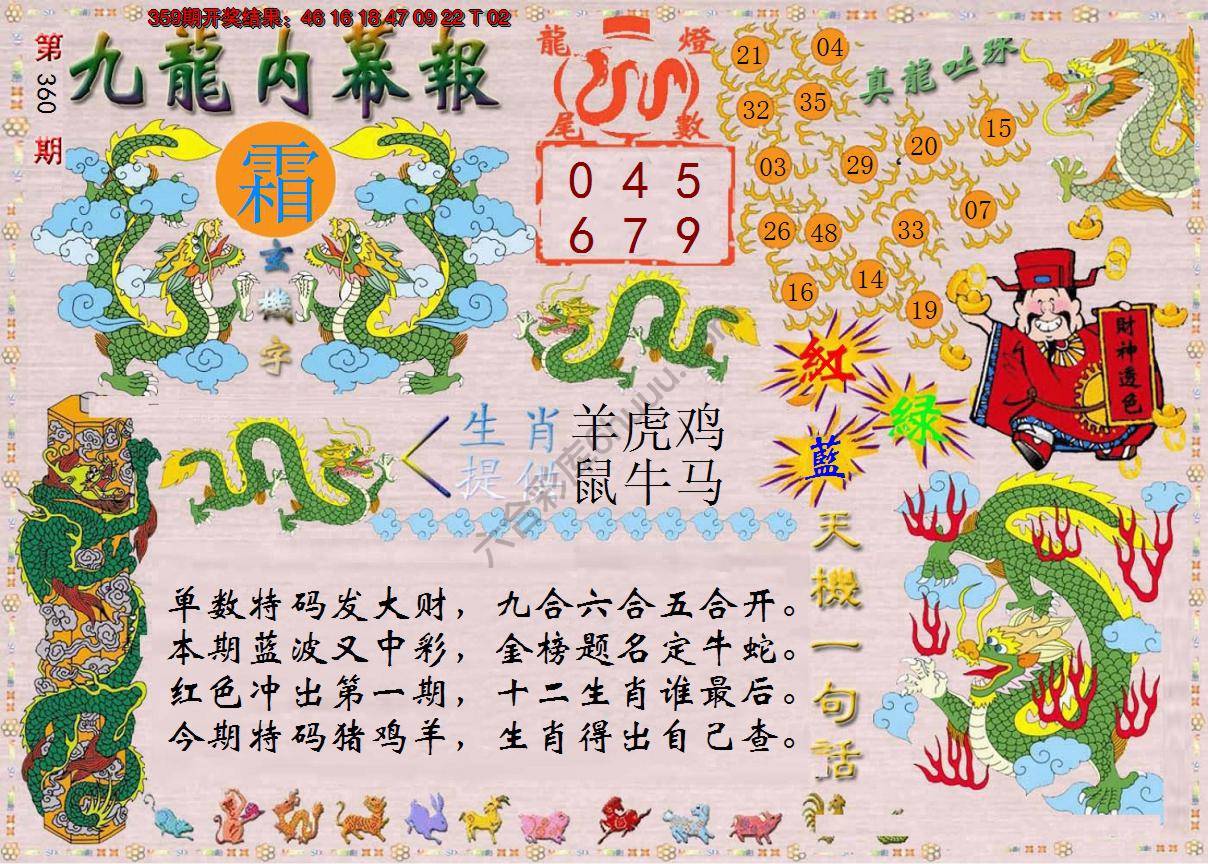 359期开奖结果：46 16 18 47 09 22 T 02
第360期
九龍内幕報
霜
玄機字
龍燈尾數
0 4 5
6 7 9
真龍吐珠
21
04
32
35
15
20
03
29
07
26
48
33
14
16
19
財神透色
紅
綠
藍
生肖提供
羊虎鸡
鼠牛马
天機一句話
单数特码发大财，九合六合五合开。
本期蓝波又中彩，金榜题名定牛蛇。
红色冲出第一期，十二生肖谁最后。
今期特码猪鸡羊，生肖得出自己查。